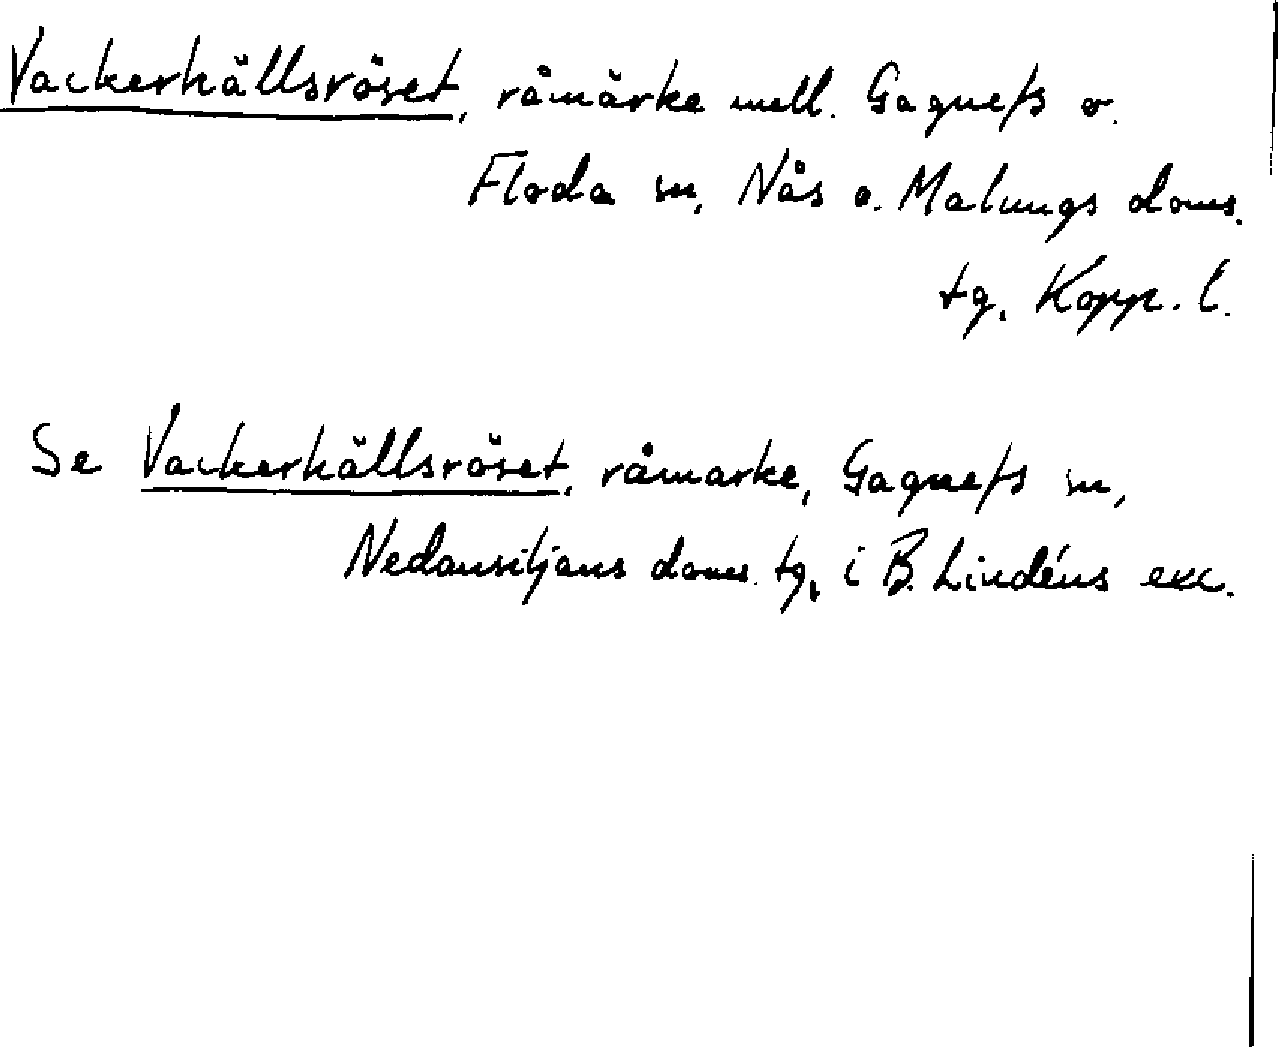 Vackerhällsröset, råmärke mell. Gagnefs o.
Floda sn, Nås o. Malungs doms.
tg, Kopp. l.
Se Vackerhällsröset, råmärke, Gagnefs sn,
Nedansiljans doms. tg, i B. Lindéns exc.